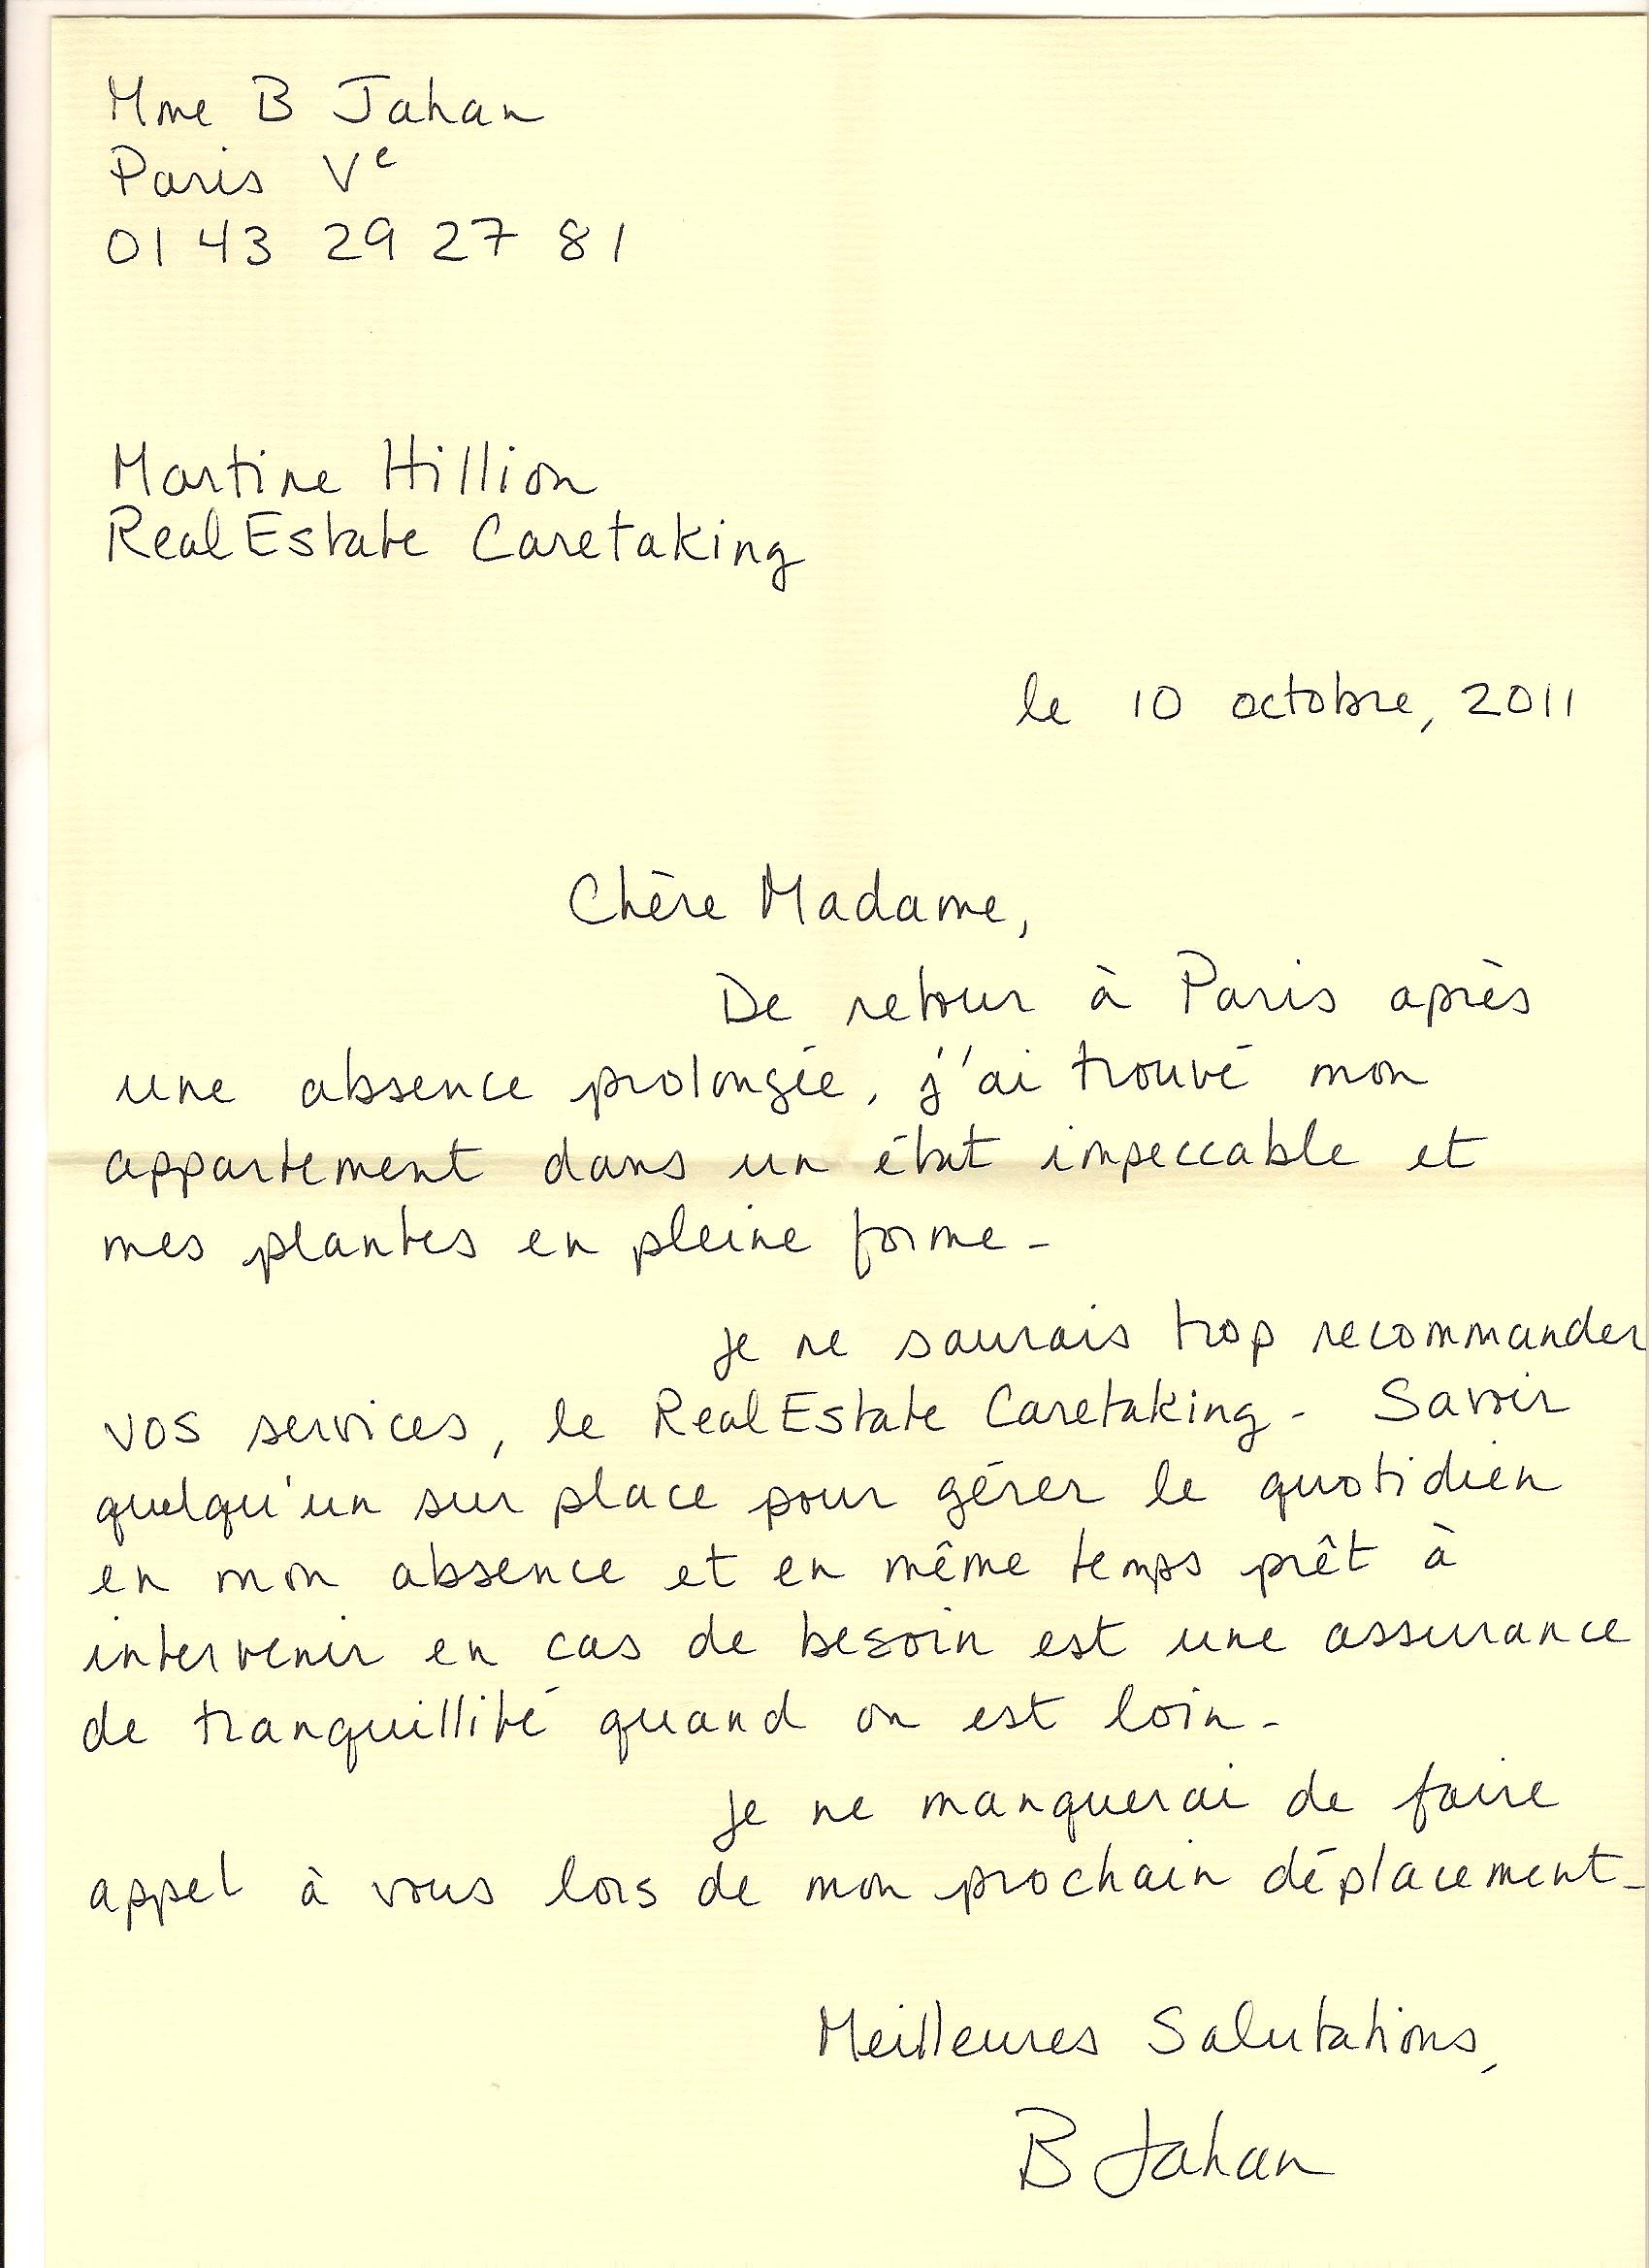 Mme B Jahan
Paris Ve
01 43 29 27 81
Martine Hillion
Real Estate Caretaking
le 10 octobre, 2011
Chère Madame,
De retour à Paris après
une absence prolongée, j'ai trouvé mon
appartement dans un état impeccable et
mes plantes en pleine forme -
Je ne saurais trop recommander
vos services, le Real Estate Caretaking - Savoir
quelqu'un sur place pour gérer le quotidien
en mon absence et en même temps prêt à
intervenir en cas de besoin est une assurance
de tranquillité quand on est loin -
Je ne manquerai de faire
appel à vous lors de mon prochain déplacement -
Meilleures Salutations,
B Jahan